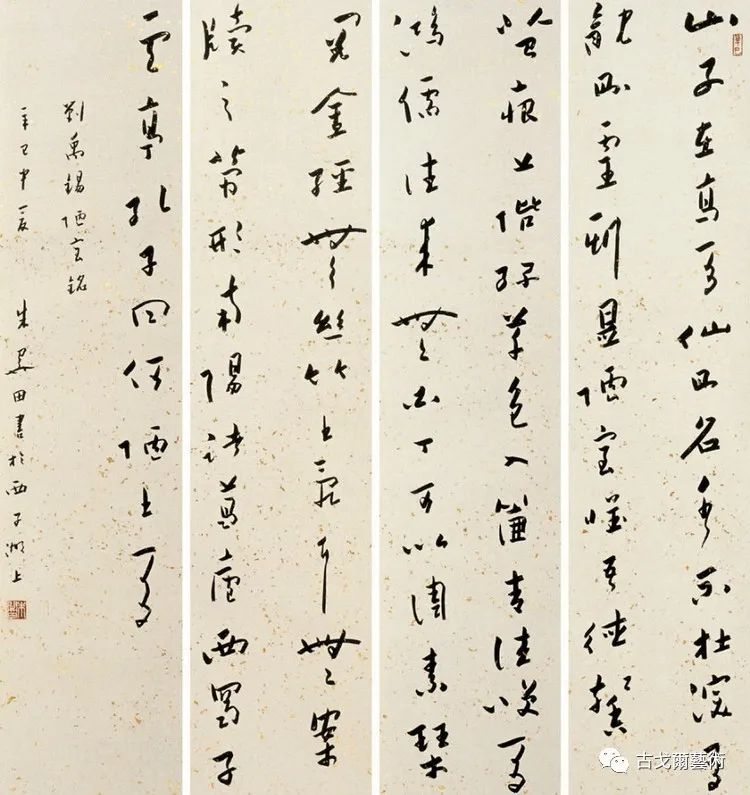 山不在高有仙則名水不在深有
龍則靈斯是陋室惟吾德馨
苔痕上階綠草色入簾青談笑有
鴻儒往來無白丁可以調素琴
閱金經無絲竹之亂耳無案
牘之勞形南陽諸葛廬西蜀子
雲亭孔子曰何陋之有
劉禹錫陋室銘
辛巳中夏 朱關田書於西子湖上
古戈爾藝術